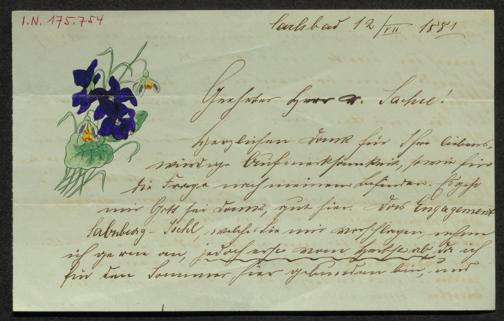 I.N. 175.754
Carlsbad 12/VII 1881
Geehrter Herr v. Sache!
Herzlichen Dank für Ihre liebens-
würdige Aufmerksamkeit, sowie für
die Frage nach meinem Befinden. Es geht
mir Gott sei Dank, gut hier. Das Engagement
Salzburg-Ischl, welche Sie mir vorschlagen, nehme
ich gerne an, jedoch erst vom Herbste ab, da ich
für den Sommer hier gebunden bin, und